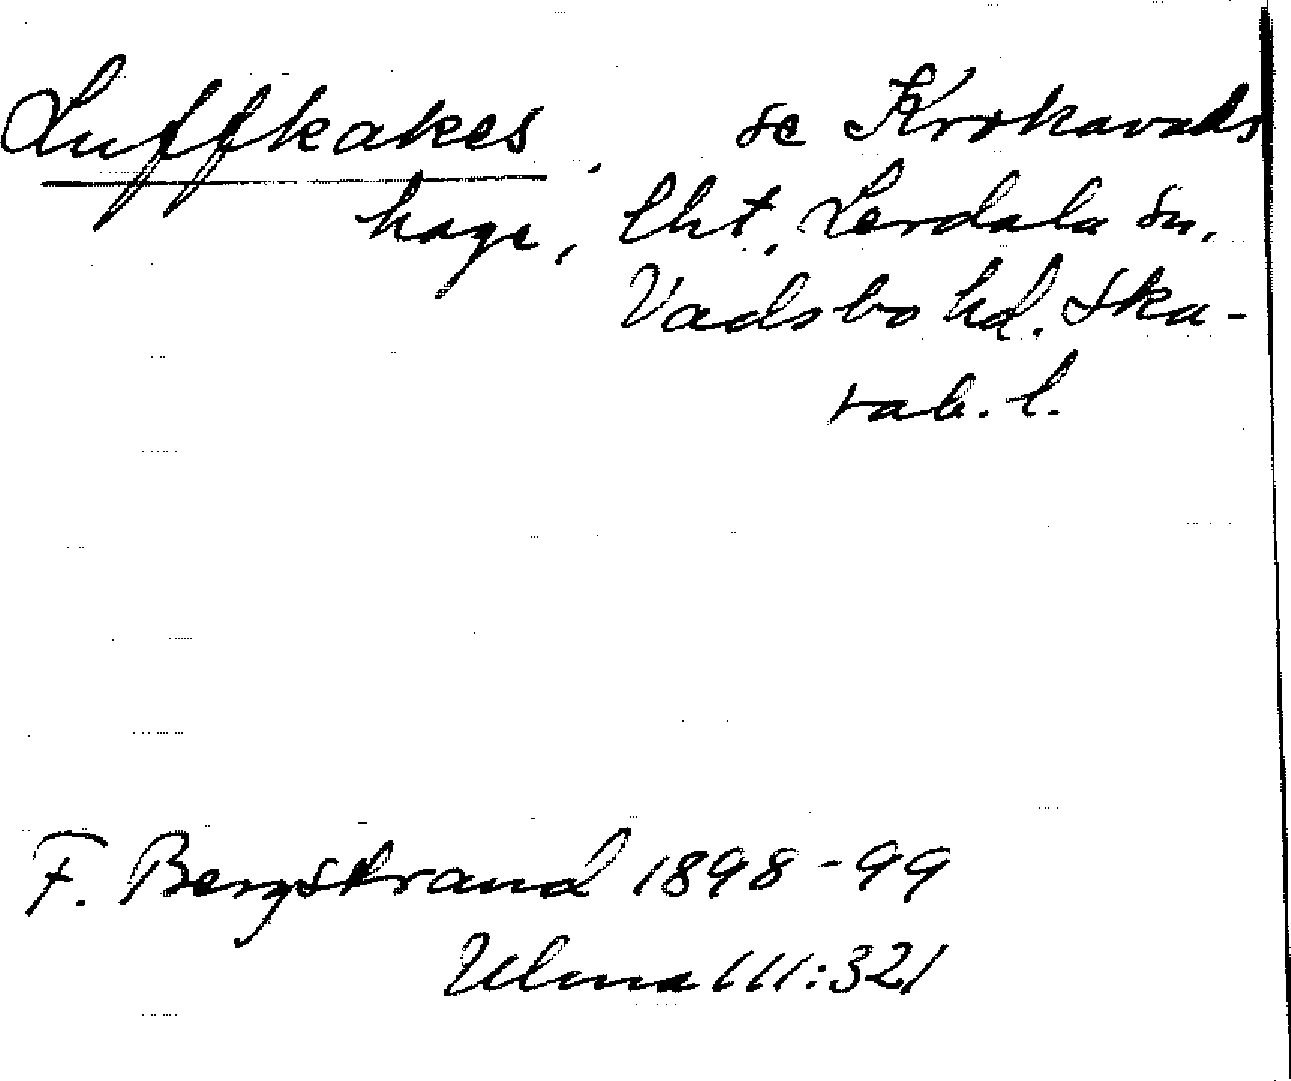 Luffkakes. se Krokavads
hage, lht, Lerdala sn,
Vadsbo hd. Ska-
rab. l.
F. Bergstrand 1898-99
Ulma 111:321